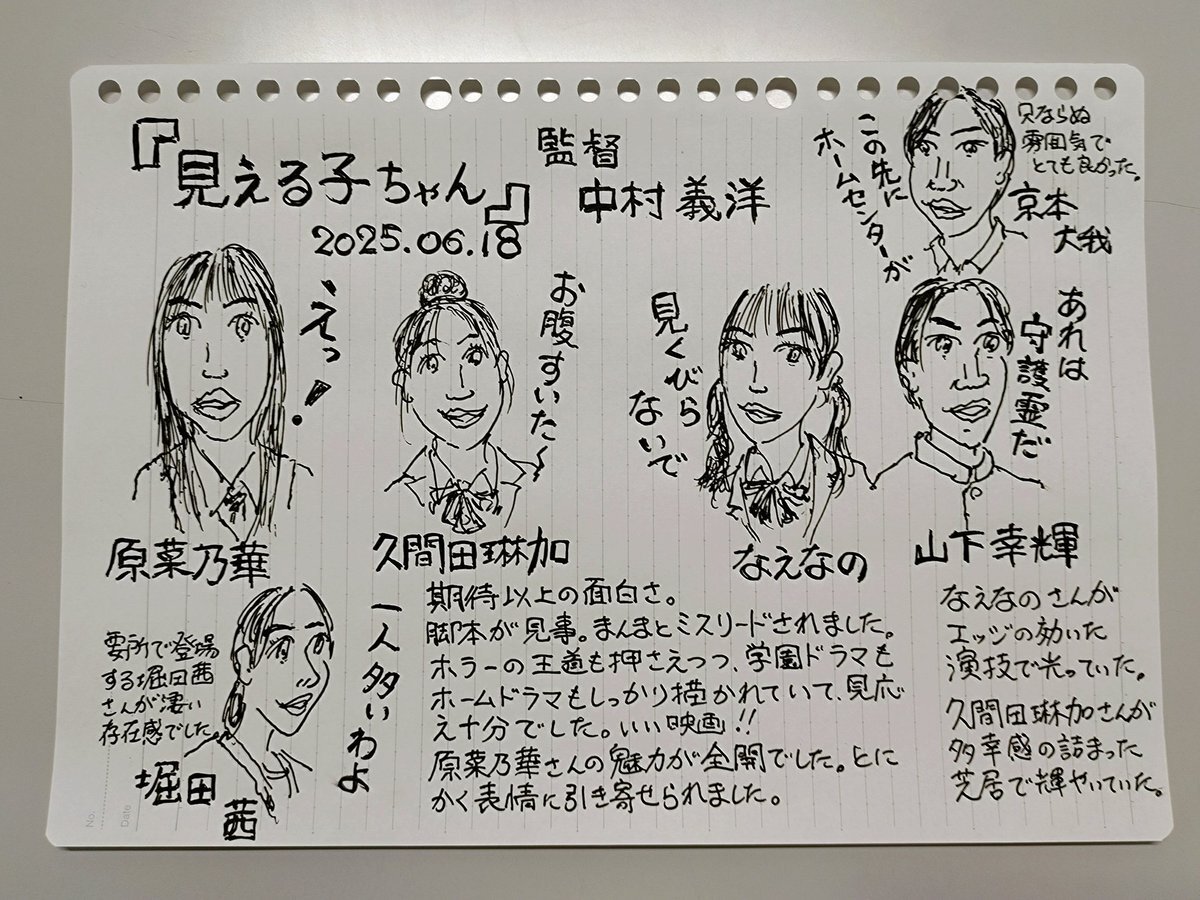 『見える子ちゃん』
2025.06.18
監督
中村義洋
この先に
ホームセンターが
只ならぬ
雰囲気で
とても良かった。
京本
大我
えっ!
原菜乃華
お腹すいた〜
久間田琳加
見くびら
ないで
なえなの
あれは
守護霊だ
山下幸輝
要所で登場
する堀田茜
さんが凄い
存在感でした。
堀田
茜
一人多いわよ
期待以上の面白さ。
脚本が見事。まんまとミスリードされました。
ホラーの王道も押さえつつ、学園ドラマも
ホームドラマもしっかり描かれていて、見応
え十分でした。いい映画!!
原菜乃華さんの魅力が全開でした。とに
かく表情に引き寄せられました。
なえなのさんが
エッジの効いた
演技で光っていた。
久間田琳加さんが
多幸感の詰まった
芝居で輝やいていた。
No.
Date